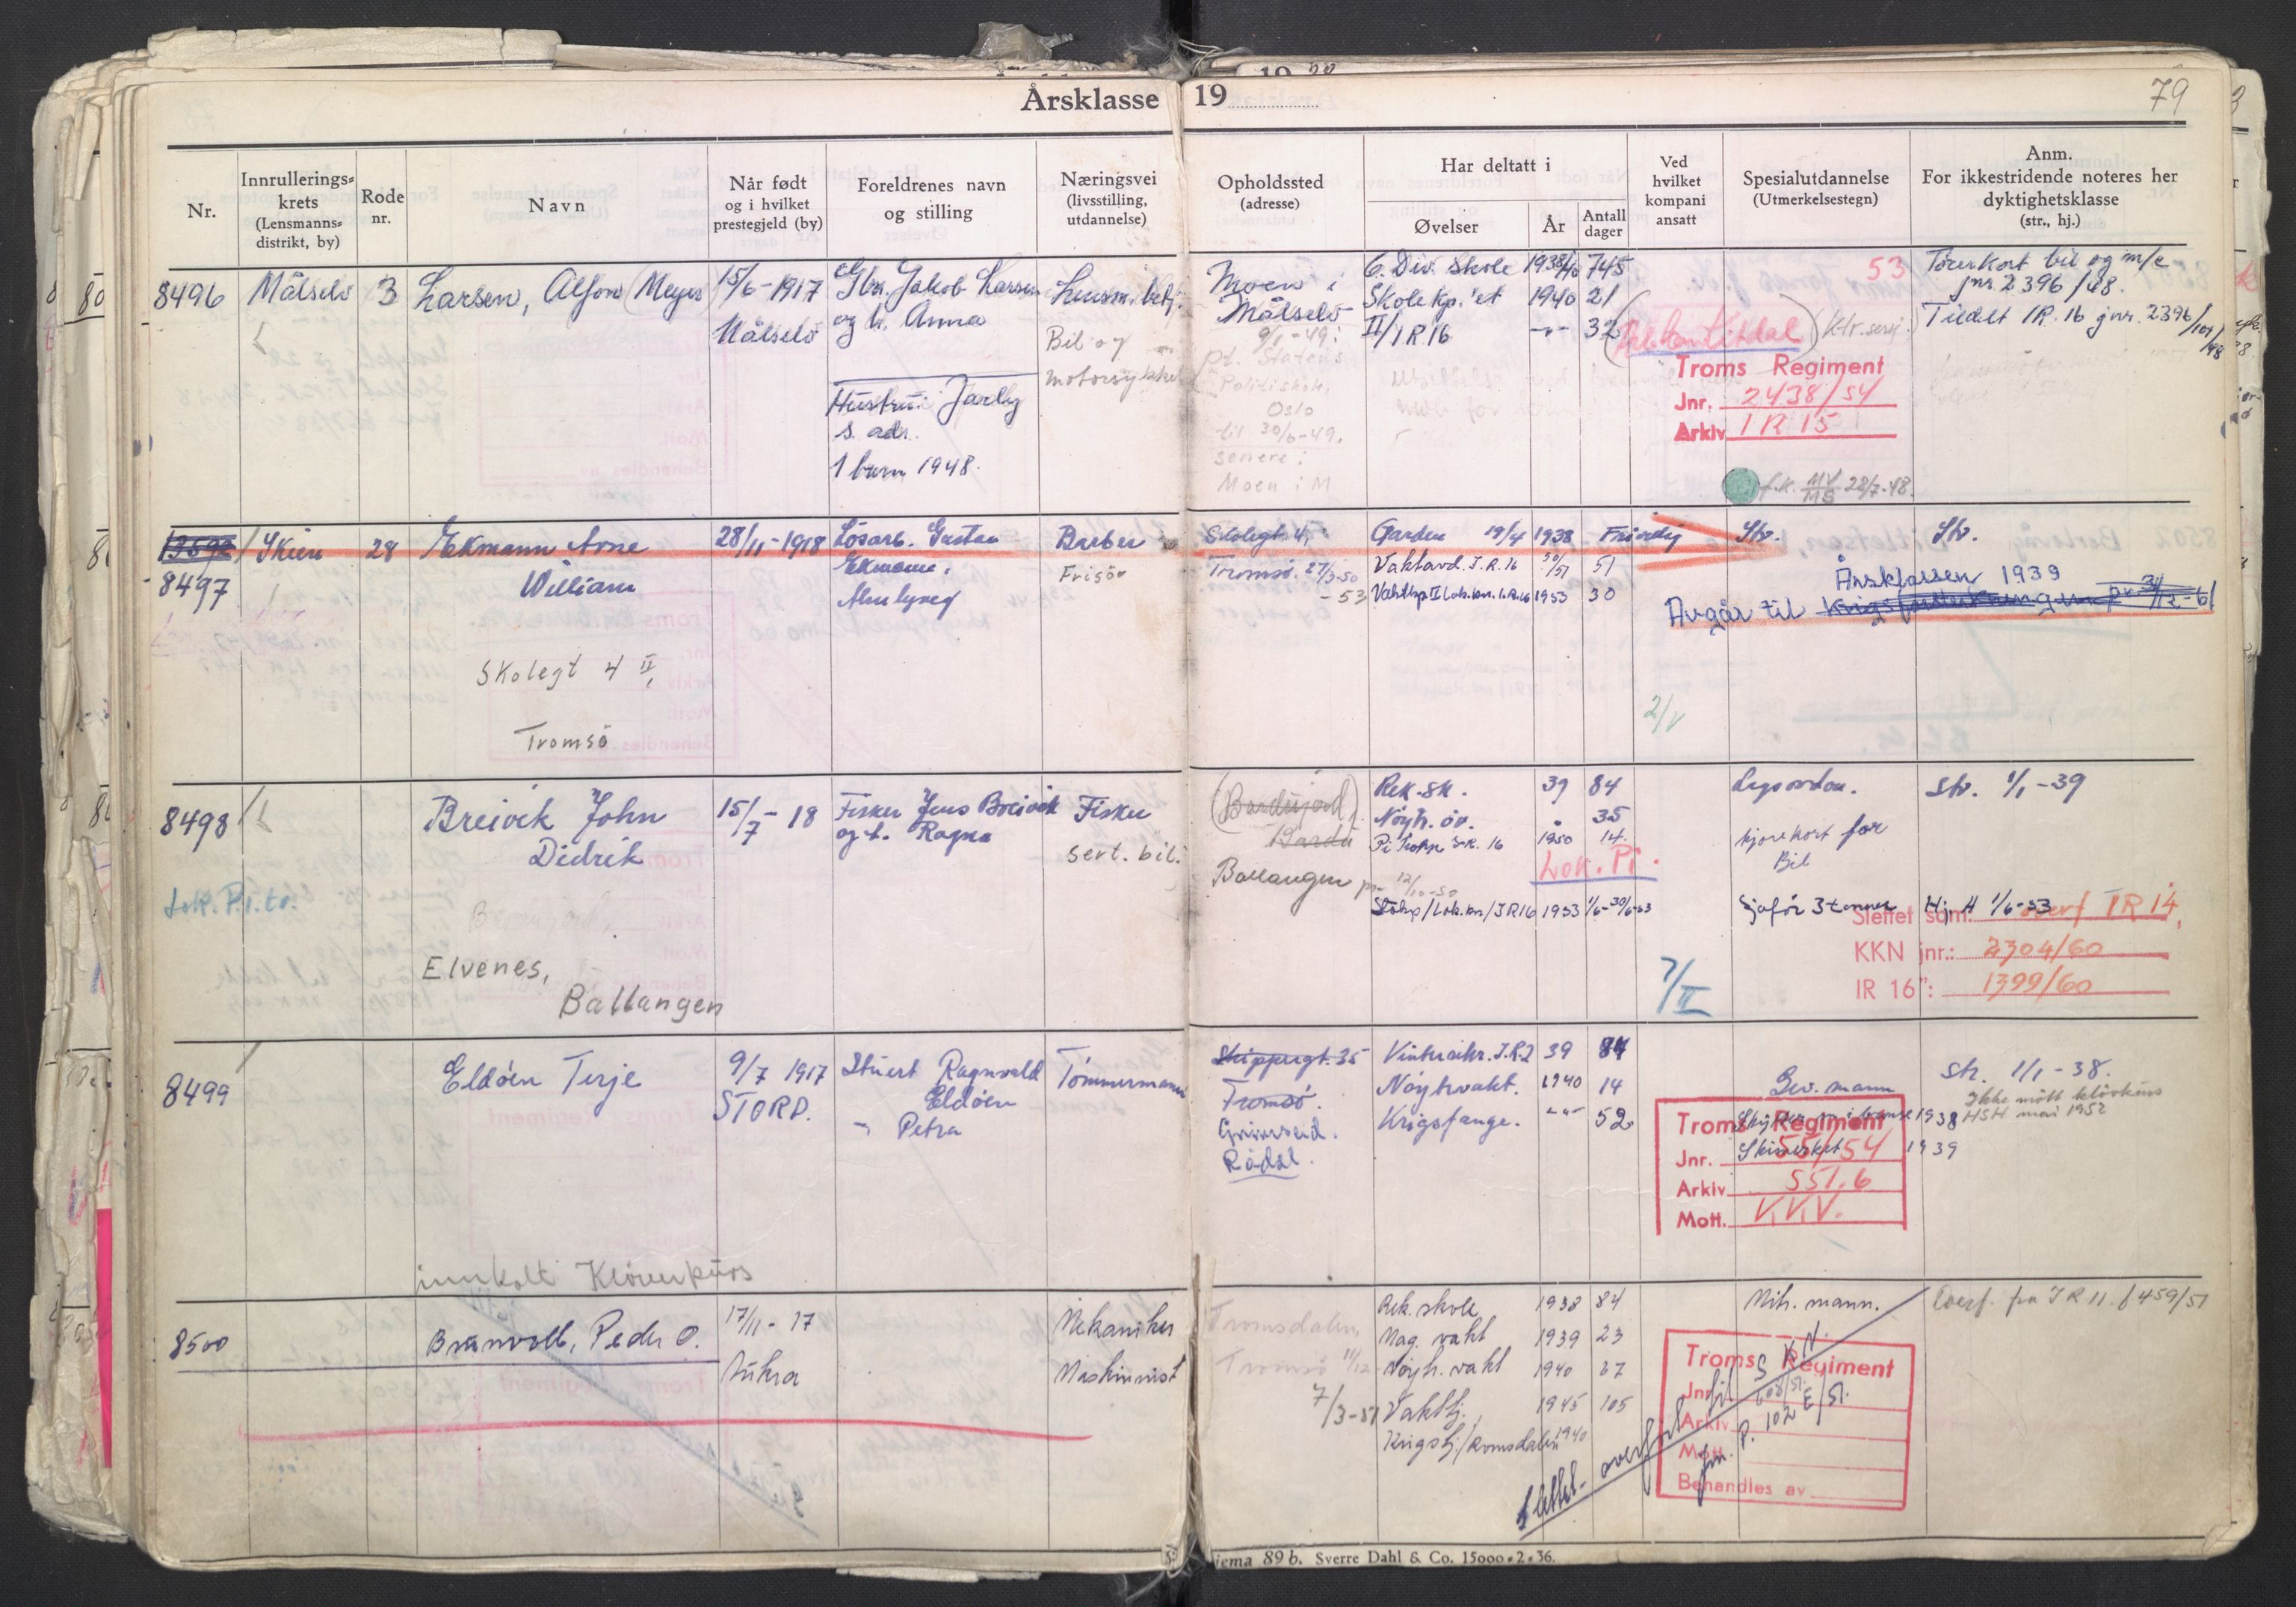 Årsklasse 19
79
Nr.
Innrullerings-
krets
(Lensmanns-
distrikt, by)
Rode
nr.
Navn
Når født
og i hvilket
prestegjeld (by)
Foreldrenes navn
og stilling
Næringsvei
(livsstilling,
utdannelse)
Opholdssted
(adresse)
Har deltatt i
Øvelser
År
Antall
dager
Ved
hvilket
kompani
ansatt
Spesialutdannelse
(Utmerkelsestegn)
Anm.
For ikkestridende noteres her
dyktighetsklasse
(str., hj.)
8496
Målselv
3
Larsen, Alfon Meyer
15/6-1917
Målselv
Gbr. Jakob Larsen
og h. Anna
Hustru: Jarly
s. adr.
1 barn 1948.
Bil og
motorsykkel
Moen i
Målselv
9/1-49:
pt. Statens
Politiskole,
Oslo
til 30/6-49.
senere:
Moen i M
6. Div. Skole 1938/40 745
Skolekp. 1940 21
II/IR 16 -"- 32
53
Troms Regiment
Jnr. 2438/54
Arkiv IR 15
f.k. MV/MS 28/7-48.
Førerkort bil og m/c
jnr. 2396/48.
Tildelt IR. 16 jnr. 2396/
8497
Skien
28
Ekmann Arne
William
Skolegt 4 II,
Tromsö
28/11-1918
Løsarb. Gustav
Ekmann.
Barber
Frisör
Skolegt. 4,
Tromsø. 27/3-50
- 53
Garden 19/4 1938
Vaktavd. I.R. 16 50/51 51
1953 30
Str.
Str.
Årsklassen 1939
Avgår til Krigsforsterkningen pr. 31/12-61
2/V
8498
Lok. Pi. tr.
Breivik John
Didrik
Elvenes,
Ballangen
15/7-18
Fisker Jens Breivik
og h. Ragna
Fisker
sert. bil.
(Bardujord)
Bardu
Ballangen
12/10-50
Rek. sk. 39 84
Nøytr. øv. " 35
1950 14
Lok. Pi.
1953 1/6-30/6-53
7/II
kjørekort for
Bil
Sjafør 3 tonner
str. 1/1-39
Hj. H 1/6-53
Slettet som: overf IR 14,
KKN jnr.: 2304/60
IR 16": 1399/60
8499
Eldøen Terje
innkalt Kløverkurs
9/7 1917
STORD.
Stuert Ragnvald
Eldøen
" Petra
Tømmermann
Skippergt. 35
Tromsø.
Grimseid.
Rådal.
39 84
Nøytrvakt. 1940 14
Krigsfange. -"- 52
Gev. mann
1938
Skimerket 1939
Troms Regiment
Jnr. 55/54
Arkiv SST. 6
Mott. V.V.V.
str. 1/1-38.
Ikke møtt kløvkurs
HSH mai 1952
8500
Brunvoll, Peder O.
17/11-17
Aukra
Mekaniker
Maskinist
Tromsdalen,
Tromsø 11/12
7/3-51
Rek. skole 1938 84
Mag. vakt 1939 23
Nøytr. vakt 1940 27
Vakttj. 1945 105
Krigstj/Romsdalen 1940
Mitr. mann.
Overf. fra IR 11. f 459/51
Slettet - overført til SKN.
jnr. P. 102 E/51.
Troms Regiment
Jnr.
Arkiv
Mott.
Behandles av
jema 89 b. Sverre Dahl & Co. 15000-2-36.